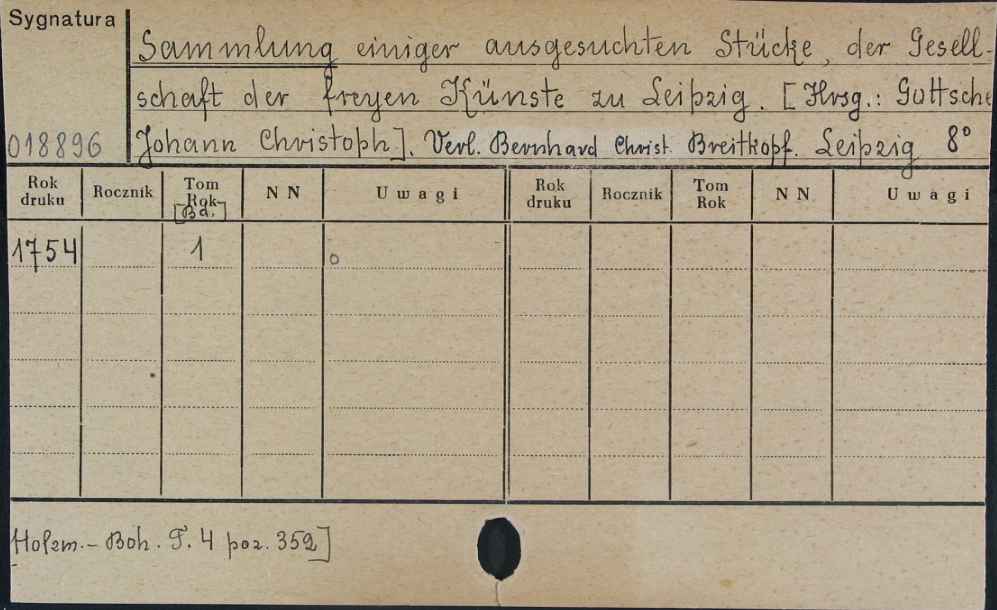 Sygnatura
Sammlung einiger ausgesuchten Stücke, der Gesell-
schaft der freyen Künste zu Leipzig. [Hrsg.: Gottsche
018896 Johann Christoph]. Verl. Bernhard Christ. Breitkopf. Leipzig 8°
Rok druku Rocznik Tom Rok [Bd.] NN Uwagi Rok druku Rocznik Tom Rok NN Uwagi
1754 1 o
Holzm.-Boh. T. 4 poz. 352]